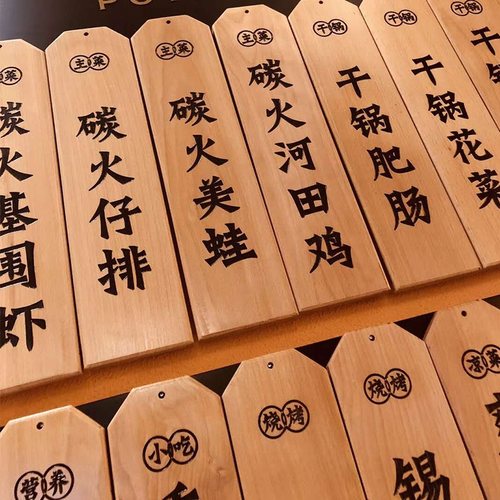 主菜
碳火基围虾
主菜
碳火仔排
主菜
碳火美蛙
主菜
碳火河田鸡
干锅
干锅肥肠
干锅
干锅花菜
干锅
干
营养
小吃
烧烤
烧烤
锡
凉菜